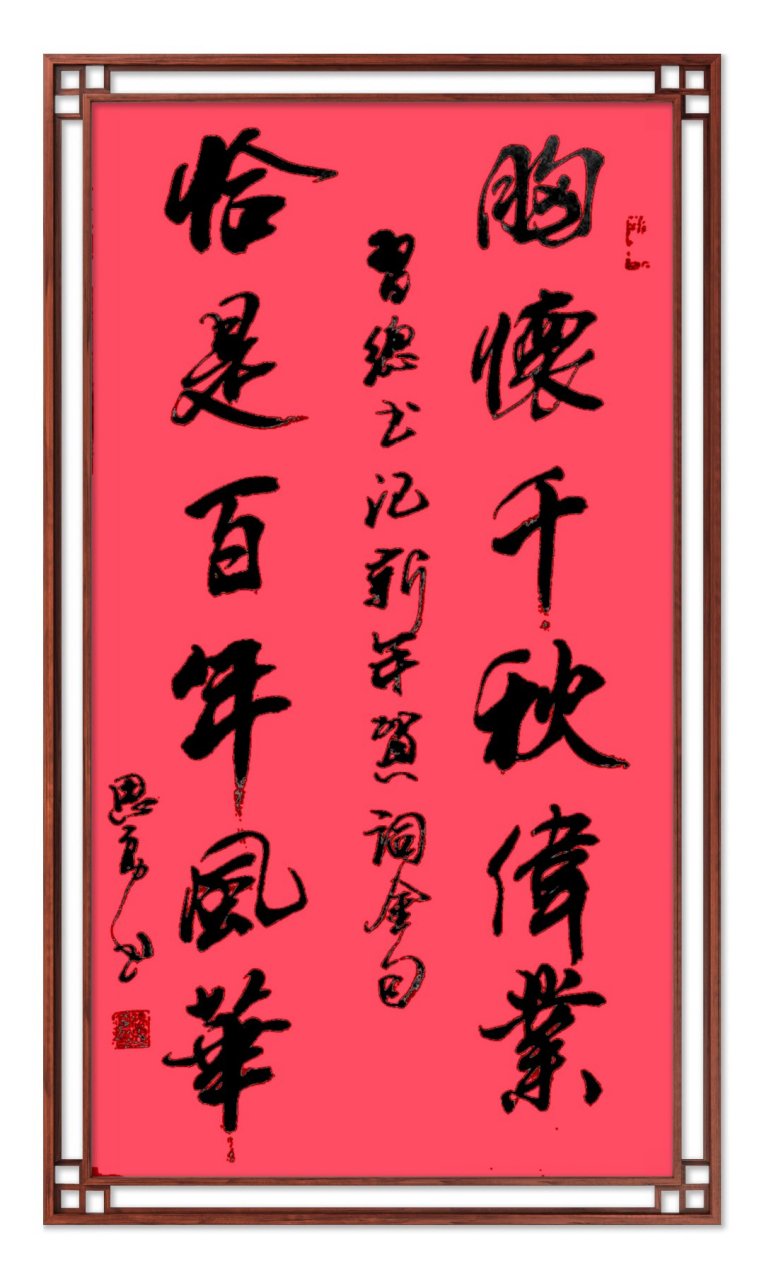 胸懷千秋偉業
恰是百年風華
習總书記新年賀詞金句
思勇书